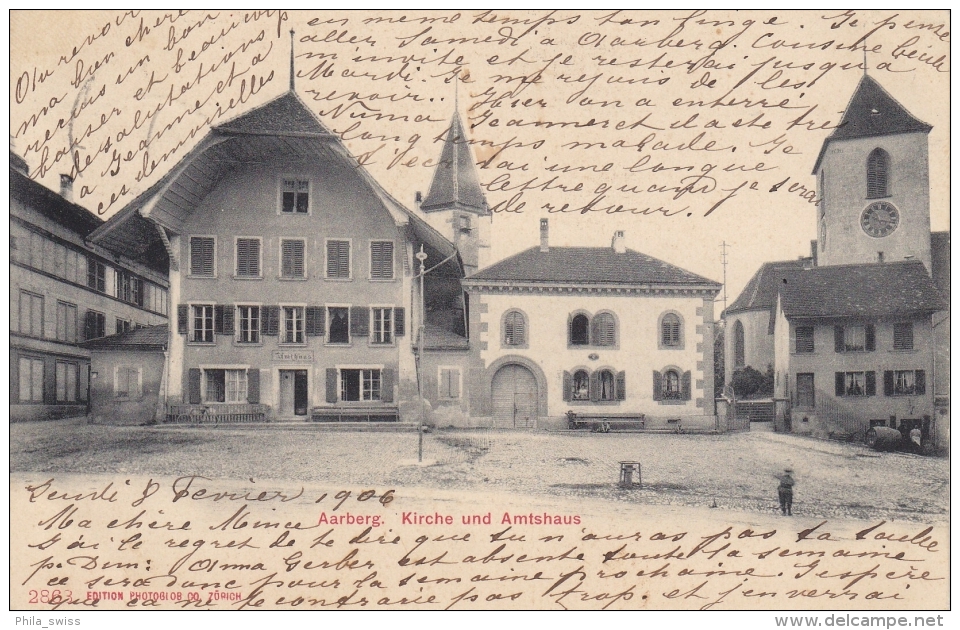 Jeudi 8 Fevrier 1906
Ma chère Mince
J'ai le regret de te dire que tu n'auras pas ta taille
p. Dim: Anna Gerber est absente toute la semaine
ce sera donc pour la semaine prochaine. J'espère
que ça ne te contrarie pas trop. et j'enverrai
en meme temps ton linge. Je pense
aller Samedi à Aarberg. Cousine
m'invite et je resterai jusqu'à
Mardi. Je me réjouis de les
revoir.. Hier on a enterré
Numa Jeanneret il a été très
longtemps malade. Je
t'écrirai une longue
lettre quand je serai
de retour.
Au revoir
ma bien chère
un bon
baiser et beaucoup
de salutations
à Jeanne et à
ces demoiselles
Amthaus
Aarberg. Kirche und Amtshaus
2863 EDITION PHOTOGLOB CO. ZÜRICH
Phila_swiss
delcampe.net